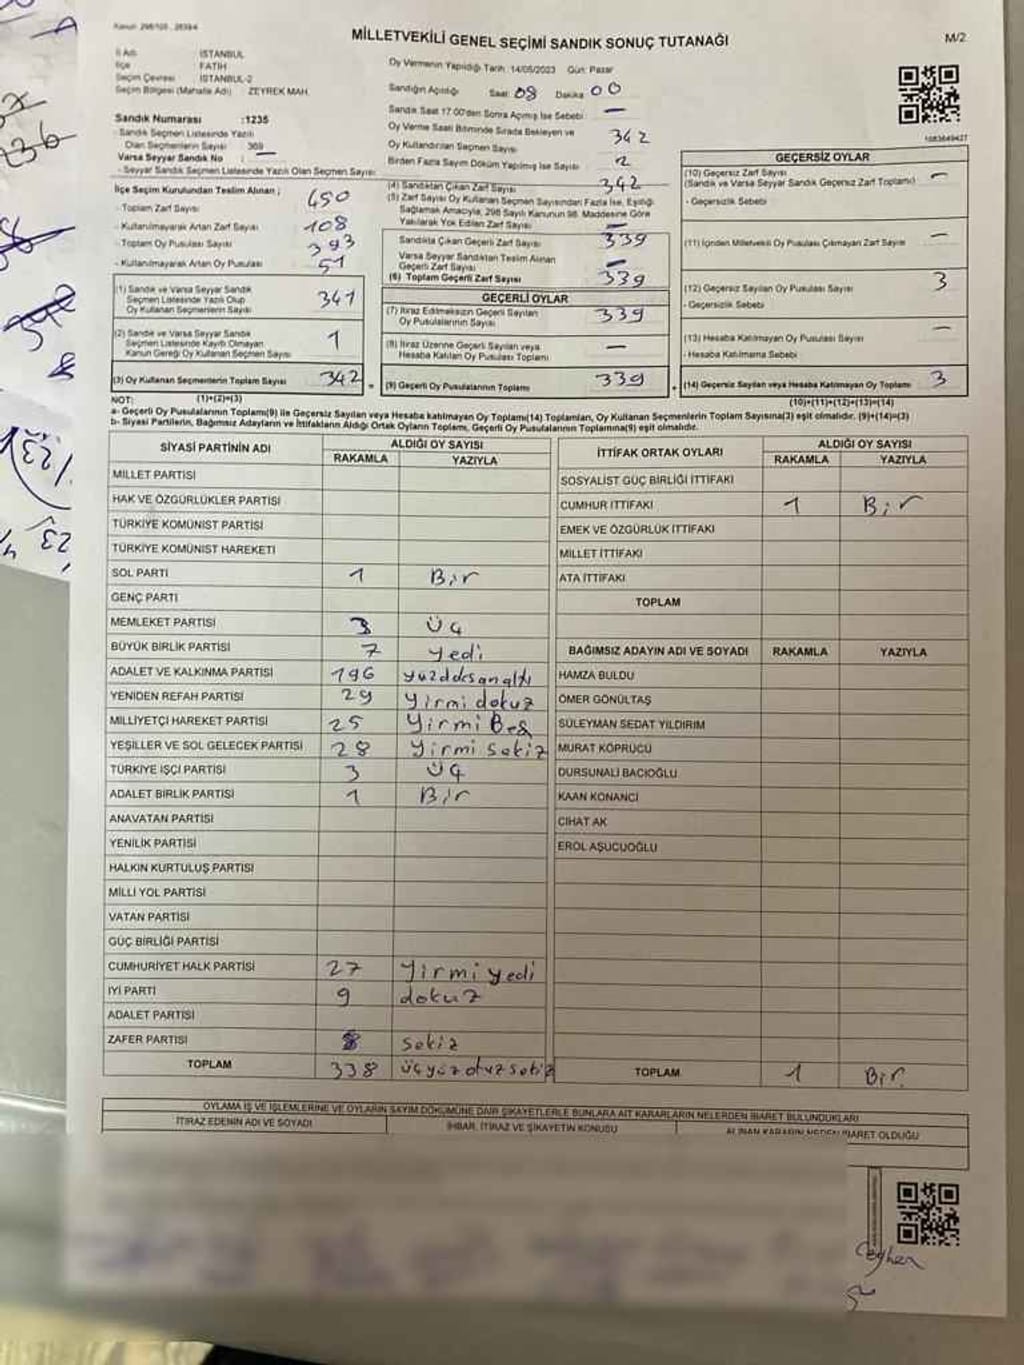 MİLLETVEKİLİ GENEL SEÇİMİ SANDIK SONUÇ TUTANAĞI
M/2
İl Adı İSTANBUL
İlçe FATİH
Seçim Çevresi İSTANBUL-2
Seçim Bölgesi (Mahalle Adı) ZEYREK MAH.
Sandık Numarası :1235
- Sandık Seçmen Listesinde Yazılı
Olan Seçmenlerin Sayısı 369
Varsa Seyyar Sandık No : —
- Seyyar Sandık Seçmen Listesinde Yazılı Olan Seçmen Sayısı
Oy Vermenin Yapıldığı Tarih :14/05/2023 Gün: Pazar
Sandığın Açıldığı Saat: 08 Dakika 00
Sandık Saat 17:00'den Sonra Açılmış İse Sebebi —
Oy Verme Saati Bitiminde Sırada Bekleyen ve
Oy Kullandırılan Seçmen Sayısı 342
Birden Fazla Sayım Döküm Yapılmış İse Sayısı 2
İlçe Seçim Kurulundan Teslim Alınan ;
- Toplam Zarf Sayısı 450
- Kullanılmayarak Artan Zarf Sayısı 108
- Toplam Oy Pusulası Sayısı 393
- Kullanılmayarak Artan Oy Pusulası 51
(1) Sandık ve Varsa Seyyar Sandık
Seçmen Listesinde Yazılı Olup
Oy Kullanan Seçmenlerin Sayısı 341
(2) Sandık ve Varsa Seyyar Sandık
Seçmen Listesinde Kayıtlı Olmayan
Kanun Gereği Oy Kullanan Seçmen Sayısı 1
(3) Oy Kullanan Seçmenlerin Toplam Sayısı 342
(1)+(2)=(3)
(4) Sandıktan Çıkan Zarf Sayısı 342
(5) Zarf Sayısı Oy Kullanan Seçmen Sayısından Fazla İse, Eşitliği
Sağlamak Amacıyla, 298 Sayılı Kanunun 98. Maddesine Göre
Yakılarak Yok Edilen Zarf Sayısı —
Sandıkta Çıkan Geçerli Zarf Sayısı 339
Varsa Seyyar Sandıktan Teslim Alınan
Geçerli Zarf Sayısı —
(6) Toplam Geçerli Zarf Sayısı 339
GEÇERLİ OYLAR
(7) İtiraz Edilmeksizin Geçerli Sayılan
Oy Pusulalarının Sayısı 339
(8) İtiraz Üzerine Geçerli Sayılan veya
Hesaba Katılan Oy Pusulası Toplamı —
(9) Geçerli Oy Pusulalarının Toplamı 339
1083649427
GEÇERSİZ OYLAR
(10) Geçersiz Zarf Sayısı —
(Sandık ve Varsa Seyyar Sandık Geçersiz Zarf Toplamı)
- Geçersizlik Sebebi
(11) İçinden Milletvekili Oy Pusulası Çıkmayan Zarf Sayısı —
(12) Geçersiz Sayılan Oy Pusulası Sayısı 3
- Geçersizlik Sebebi
(13) Hesaba Katılmayan Oy Pusulası Sayısı —
- Hesaba Katılmama Sebebi
(14) Geçersiz Sayılan veya Hesaba Katılmayan Oy Toplamı 3
(10)+(11)+(12)+(13)=(14)
NOT:
a- Geçerli Oy Pusulalarının Toplamı(9) ile Geçersiz Sayılan veya Hesaba katılmayan Oy Toplamı(14) Toplamları, Oy Kullanan Seçmenlerin Toplam Sayısına(3) eşit olmalıdır. (9)+(14)=(3)
b- Siyasi Partilerin, Bağımsız Adayların ve İttifakların Aldığı Ortak Oyların Toplamı, Geçerli Oy Pusulalarının Toplamına(9) eşit olmalıdır.
SİYASİ PARTİNİN ADI ALDIĞI OY SAYISI
RAKAMLA YAZIYLA
MİLLET PARTİSİ
HAK VE ÖZGÜRLÜKLER PARTİSİ
TÜRKİYE KOMÜNİST PARTİSİ
TÜRKİYE KOMÜNİST HAREKETİ
SOL PARTİ 1 Bir
GENÇ PARTİ
MEMLEKET PARTİSİ 3 Üç
BÜYÜK BİRLİK PARTİSİ 7 yedi
ADALET VE KALKINMA PARTİSİ 196 yüzdoksanaltı
YENİDEN REFAH PARTİSİ 29 yirmi dokuz
MİLLİYETÇİ HAREKET PARTİSİ 25 Yirmi Beş
YEŞİLLER VE SOL GELECEK PARTİSİ 28 Yirmi sekiz
TÜRKİYE İŞÇİ PARTİSİ 3 Üç
ADALET BİRLİK PARTİSİ 1 Bir
ANAVATAN PARTİSİ
YENİLİK PARTİSİ
HALKIN KURTULUŞ PARTİSİ
MİLLİ YOL PARTİSİ
VATAN PARTİSİ
GÜÇ BİRLİĞİ PARTİSİ
CUMHURİYET HALK PARTİSİ 27 yirmi yedi
İYİ PARTİ 9 dokuz
ADALET PARTİSİ
ZAFER PARTİSİ 8 sekiz
TOPLAM 338 üçyüz otuz sekiz
İTTİFAK ORTAK OYLARI ALDIĞI OY SAYISI
RAKAMLA YAZIYLA
SOSYALİST GÜÇ BİRLİĞİ İTTİFAKI
CUMHUR İTTİFAKI 1 Bir
EMEK VE ÖZGÜRLÜK İTTİFAKI
MİLLET İTTİFAKI
ATA İTTİFAKI
TOPLAM
BAĞIMSIZ ADAYIN ADI VE SOYADI RAKAMLA YAZIYLA
HAMZA BULDU
ÖMER GÖNÜLTAŞ
SÜLEYMAN SEDAT YILDIRIM
MURAT KÖPRÜCÜ
DURSUNALİ BACIOĞLU
KAAN KONANCİ
CİHAT AK
EROL AŞUCUOĞLU
TOPLAM 1 Bir.
OYLAMA İŞ VE İŞLEMLERİNE VE OYLARIN SAYIM DÖKÜMÜNE DAİR ŞİKAYETLERLE BUNLARA AİT KARARLARIN NELERDEN İBARET BULUNDUKLARI
İTİRAZ EDENİN ADI VE SOYADI İHBAR, İTİRAZ VE ŞİKAYETİN KONUSU ALINAN KARARIN NEDEN İBARET OLDUĞU